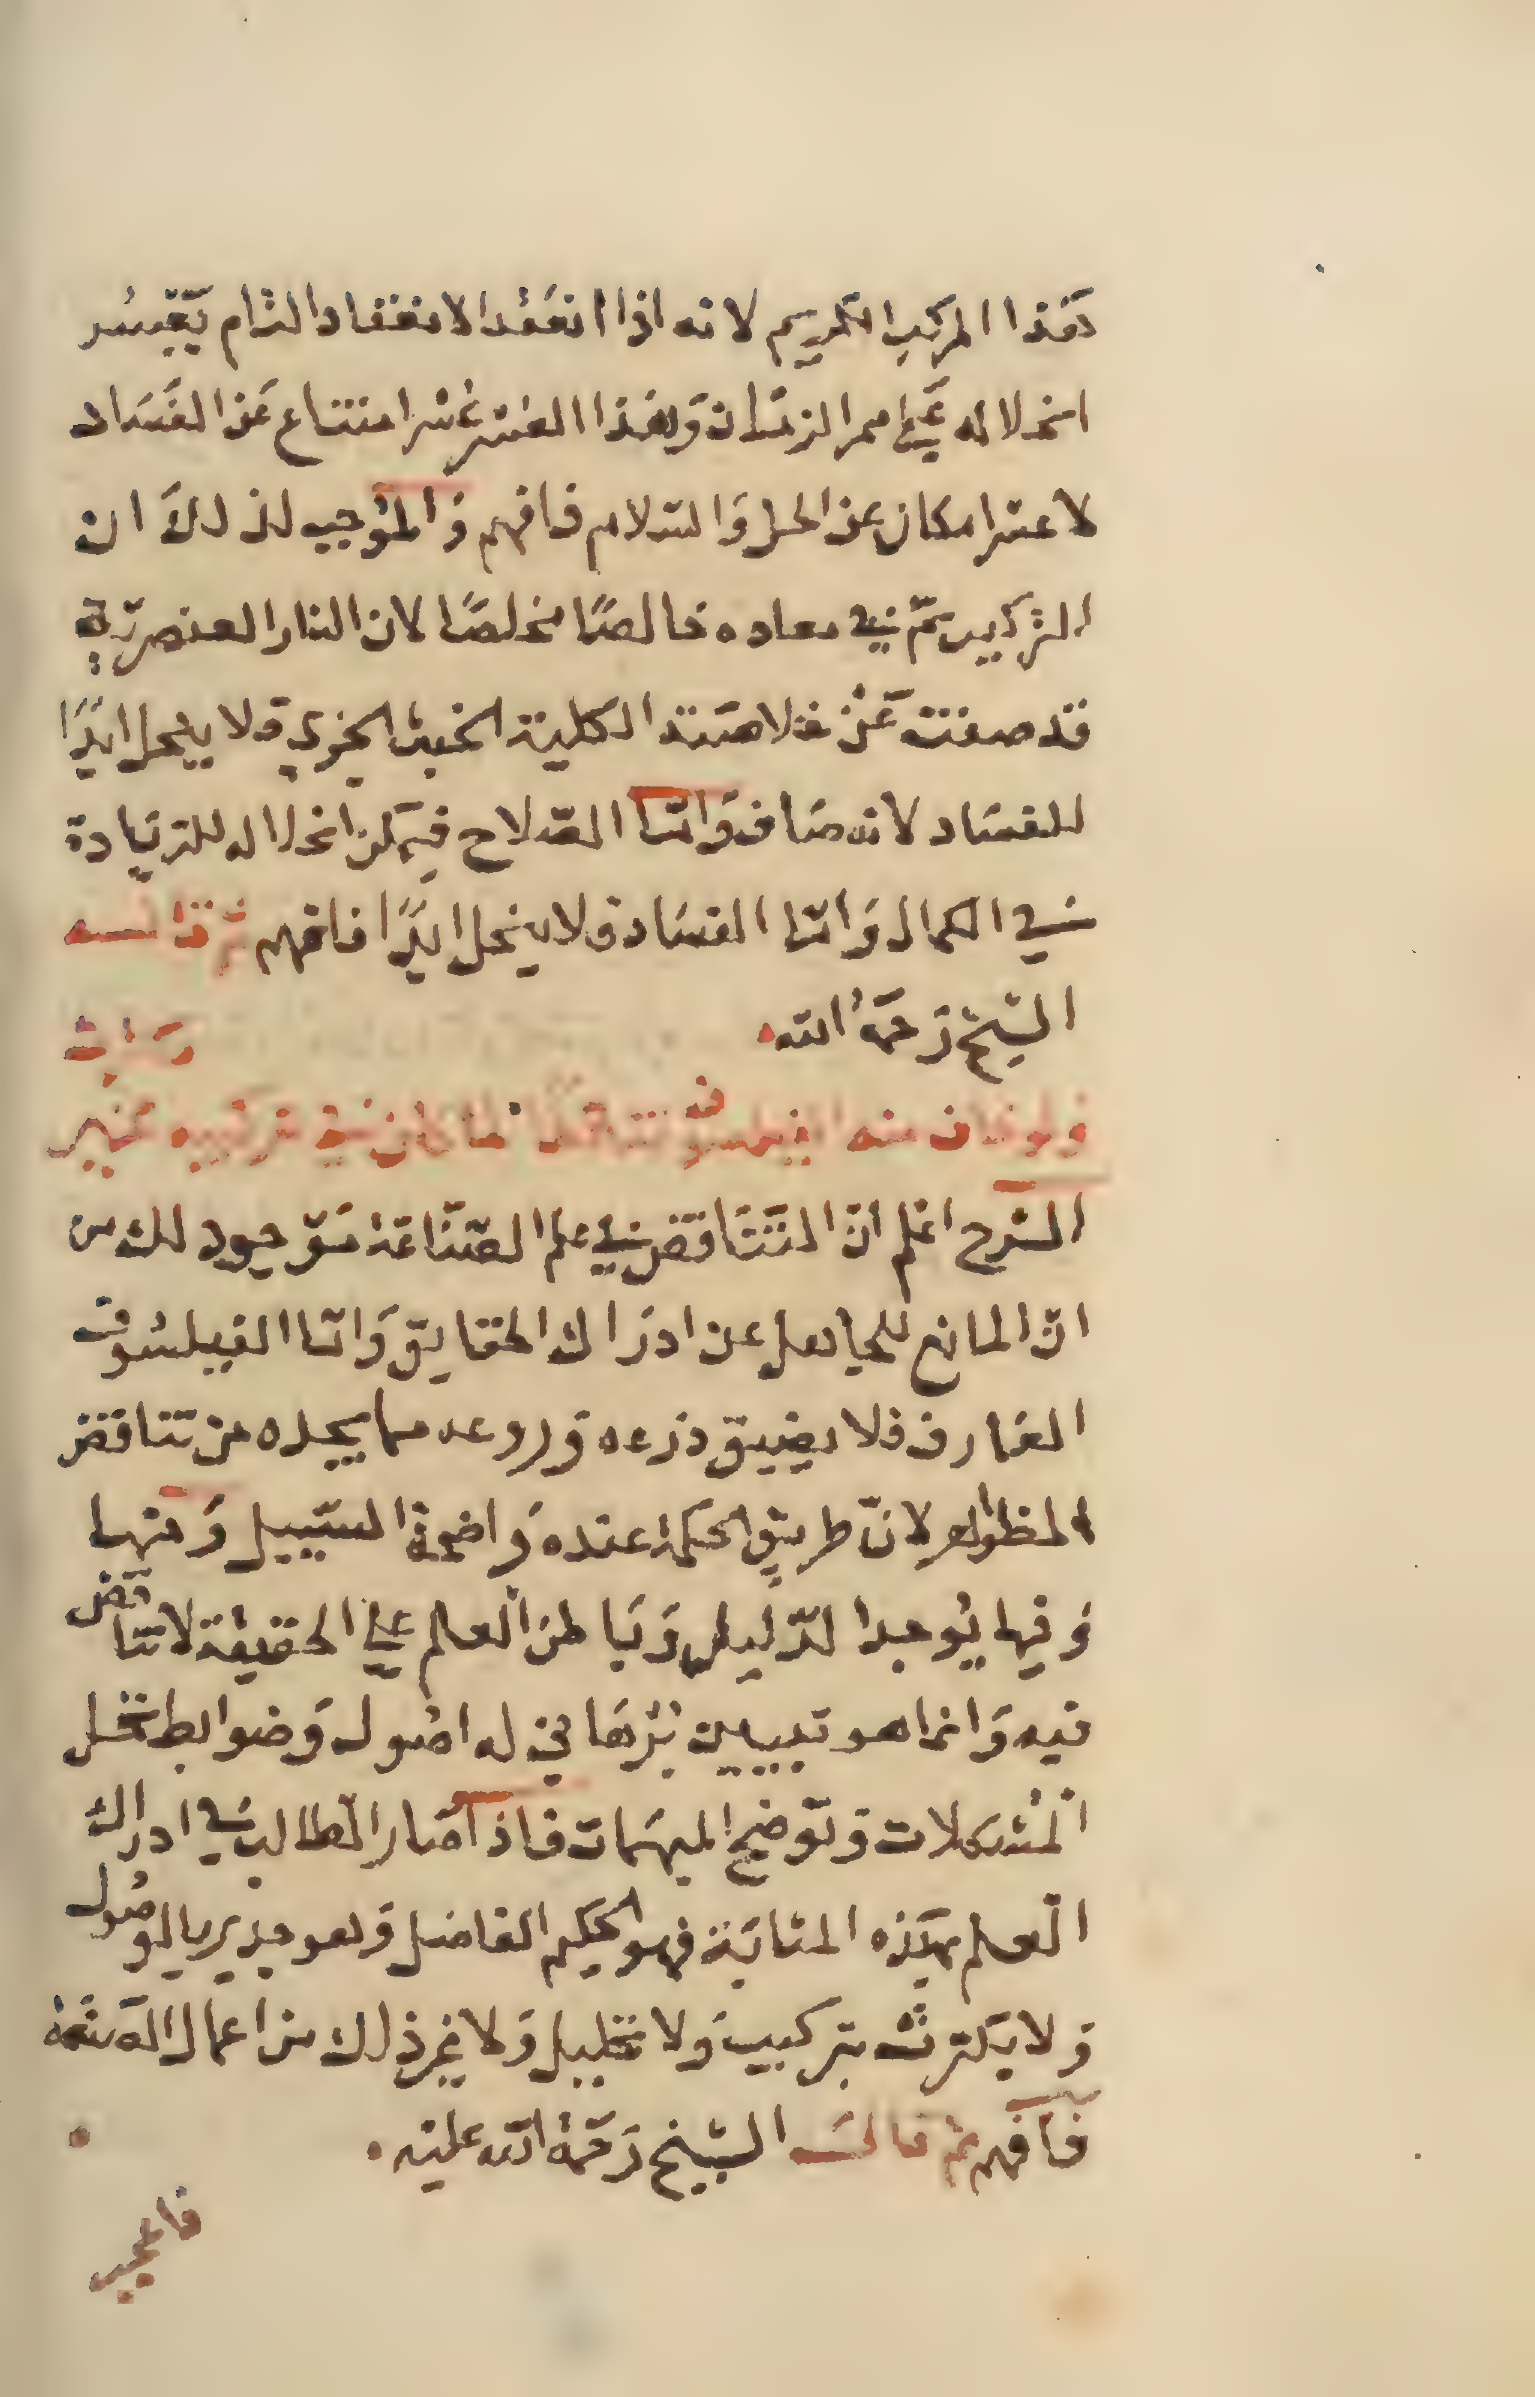 هذا المركب الكريم لانه اذا انعقد الانعقاد التام يتعسر
انحلاله على ممر الزمان وهذا العسر عسر امتناع عن الفساد
لا عسر امكان عن الحل والسلام فافهم والموجب لذلك ان
التركيب تم في معاده خالصا مخلصا لان النار العنصرية
قد صفت عن خلاصته الكلية الخبث الجزوي ولا ينحل ابدا
للفساد لانه صاف واما الصلاح فيمكن انحلاله للزيادة
في الكمال واما الفساد فلا ينحل ابدا فافهم ثم قال
الشيخ رحمه الله
فيلسوف تناقضا لما كان في تركيبه
الشرح اعلم ان التناقض في علم الصناعة موجود لك من
ان المانع للجاهل عن ادراك الحقايق واما الفيلسوف
العارف فلا يضيق ذرعه وروعه مما يجده من تناقض
الظواهر لان طريق الحكمة عنده واضحة السبيل ومنها
وفيها يوجد الدليل وباطن العلم على الحقيقة لا تناقض
فيه وانما هو تبيين برهاني له اصول وضوابط تحل
المشكلات وتوضح المبهمات فاذا صار الطالب في ادراك
العلم بهذه المثابة فهو الحكيم الفاضل وهو جدير بالوصول
ولا يكترث بتركيب ولا تحليل ولا غير ذلك من اعمال الصنعة
فافهم ثم قال الشيخ رحمة الله عليه